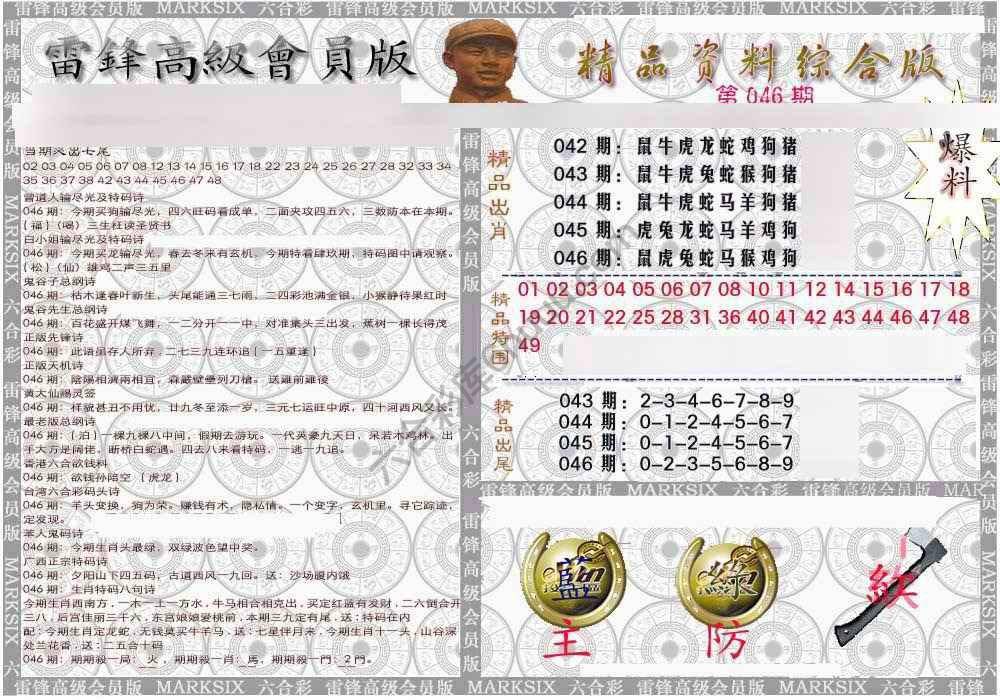 雷锋高级会员版 MARKSIX 六合彩 雷锋高级会员版 MARKSIX 六合彩 雷锋高级会员版
雷鋒高級會員版
精品资料综合版
第 046 期
02 03 04 05 06 07 08 12 13 14 15 16 17 18 22 23 24 25 26 27 28 32 33 34
35 36 37 38 42 43 44 45 46 47 48
曾道人输尽光及特码诗
046 期：今期买狗输尽光，四六旺码看成单，二面夹攻四五六，三数防本在本期。
{福}（喝）三生枉读圣贤书
白小姐输尽光及特码诗
046 期：今期买龙输尽光，春去冬来有玄机，今期特看肆玖期，特码图中请观察。
{松}（仙）雄鸡二声三五里
鬼谷子总纲诗
046 期：枯木逢春叶新生，头尾能通三七雨，二四彩池满金银，小猴静待果红时
鬼谷先生总纲诗
046 期：百花盛开煤飞舞，一二分开一一中，对准集头三出发，蕉树一棵长得茂
正版先锋诗
046 期：此语虽存人所弃，二七三九连环追{一五重逢}
正版天机诗
046 期：陰陽相濟兩相宜，森嚴壁壘列刀槍。 送雞前雞後
黄大仙赐灵签
046 期：样貌甚丑不用忧，廿九冬至添一岁，三元七运旺中原，四十河西风又长。
最老版总纲诗
046 期：{泊}一棵九棵八中间，假期去游玩。一代英豪九天日，呆若木鸡林。出
手大方是阔佬。断桥白蛇遇。四去八来看特码，一逃一九追。
香港六合欲钱料
046 期：欲钱孙陪空 {虎龙}
台湾六合彩码头诗
046 期：羊头变换，狗为荣。赚钱有术，隐私情。一个变字，玄机里。寻它踪迹，
定发现。
苯人鬼码诗
046 期：今期生肖头最绿，双绿波色望中奖。
广西正宗特码诗
046 期：夕阳山下四五码，古道西风一九回。送：沙场腹内饿
046 期：生肖特码八句诗
今期生肖西南方，一木一土一方水，牛马相合相克出，买定红蓝有发财，二六倒合开
三八，后宫佳丽三千六，东宫娘娘爱桃前，本期三九定有尾，送：特码在内
配：今期生肖定龙蛇，无钱莫买牛羊马，送：七星伴月来，今期生肖十一头，山谷深
处兰花香，送：二五合十码
046 期：期期殺一局：火，期期殺一肖：馬，期期殺一門：2 門。
精品出肖
042 期：鼠牛虎龙蛇鸡狗猪
043 期：鼠牛虎兔蛇猴狗猪
044 期：鼠牛虎蛇马羊狗猪
045 期：虎兔龙蛇马羊鸡狗
046 期：鼠虎兔蛇马猴鸡狗
爆料
精品特围
01 02 03 04 05 06 07 08 10 11 12 14 15 16 17 18
19 20 21 22 25 28 31 36 40 41 42 43 44 46 47 48
49
精品出尾
043 期：2-3-4-6-7-8-9
044 期：0-1-2-4-5-6-7
045 期：0-1-2-4-5-6-7
046 期：0-2-3-5-6-8-9
雷锋高级会员版 MARKSIX 六合彩 雷锋高级会员版 MAR
藍
主
綠
防
雷锋高级会员版 MARKSIX 六合彩 雷锋高级会员版 MARKSIX 六合彩 雷锋高级会员版